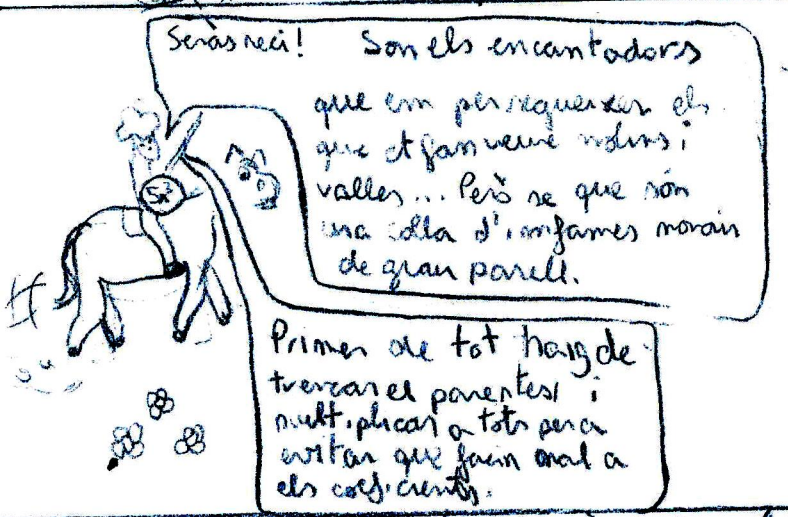 Seràs neci! Son els encantadors
que em persegueixen els
que et fan veure molins i
valles... Però se que són
una colla d'imfames monoin
de grau parell.
Primer de tot haig de
trencar el parentesi i
multiplicar a tots per a
evitar que facin mal a
els coeficients.